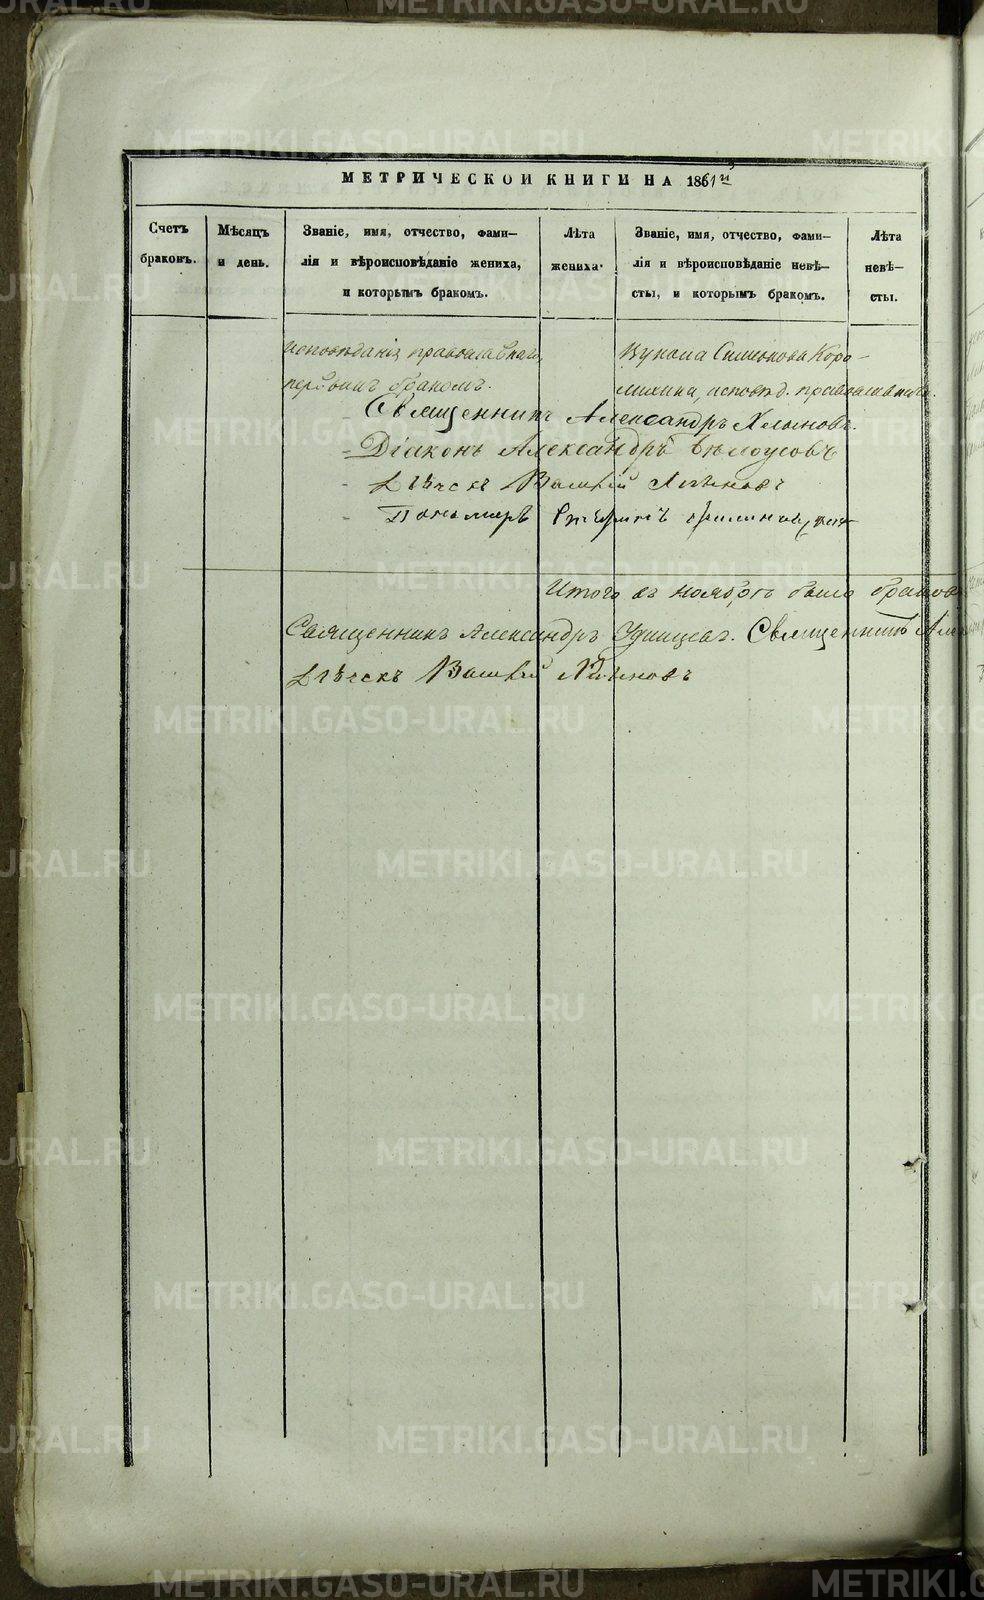 МЕТРИЧЕСКОЙ КНИГИ НА 186
Счетъ браковъ.
Мѣсяцъ и день.
Званіе, имя, отчество, фами-
лія и вѣроисповѣданіе жениха,
и которымъ бракомъ.
Лѣта жениха.
Званіе, имя, отчество, фами-
лія и вѣроисповѣданіе невѣ-
сты, и которымъ бракомъ.
Лѣта невѣ-
сты.
исповѣданія православнаго,
первымъ бракомъ.
Симеонова Коро-
михина, исповѣд. православнаго.
Священникъ Александръ Хлыновъ.
Діаконъ Александръ Бѣлоусовъ
Дьячекъ Василій
Пономарь
Итого въ ноябрѣ было браковъ
Священникъ Александръ Удинцевъ. Священникъ
Дьячекъ Василій
METRIKI.GASO-URAL.RU